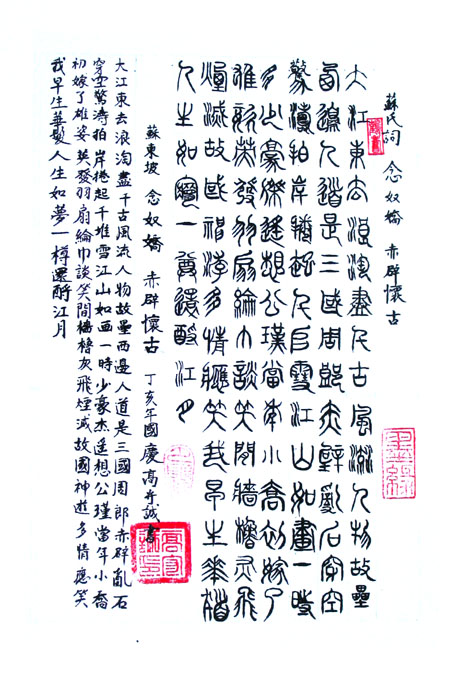 蘇氏詞 念奴嬌 赤辟懷古
大江東去浪淘盡千古風流人物故壘
西邊人道是三國周郎赤壁亂石穿空
驚濤拍岸捲起千堆雪江山如畫一時
多少豪傑遙想公瑾當年小喬初嫁了
雄姿英發羽扇綸巾談笑間檣櫓灰飛
煙滅故國神遊多情應笑我早生華髮
人生如夢一尊還酹江月
蘇東坡 念奴嬌 赤辟懷古 丁亥年國慶高誠書
大江東去浪淘盡千古風流人物故壘西邊人道是三國周郎赤辟亂石
穿空驚涛拍岸捲起千堆雪江山如画一時少豪杰遥想公瑾當年小喬
初嫁了雄姿英發羽扇綸巾談笑間檣櫓灰飛煙滅故國神遊多情應笑
我早生華髮人生如夢一樽還酹江月